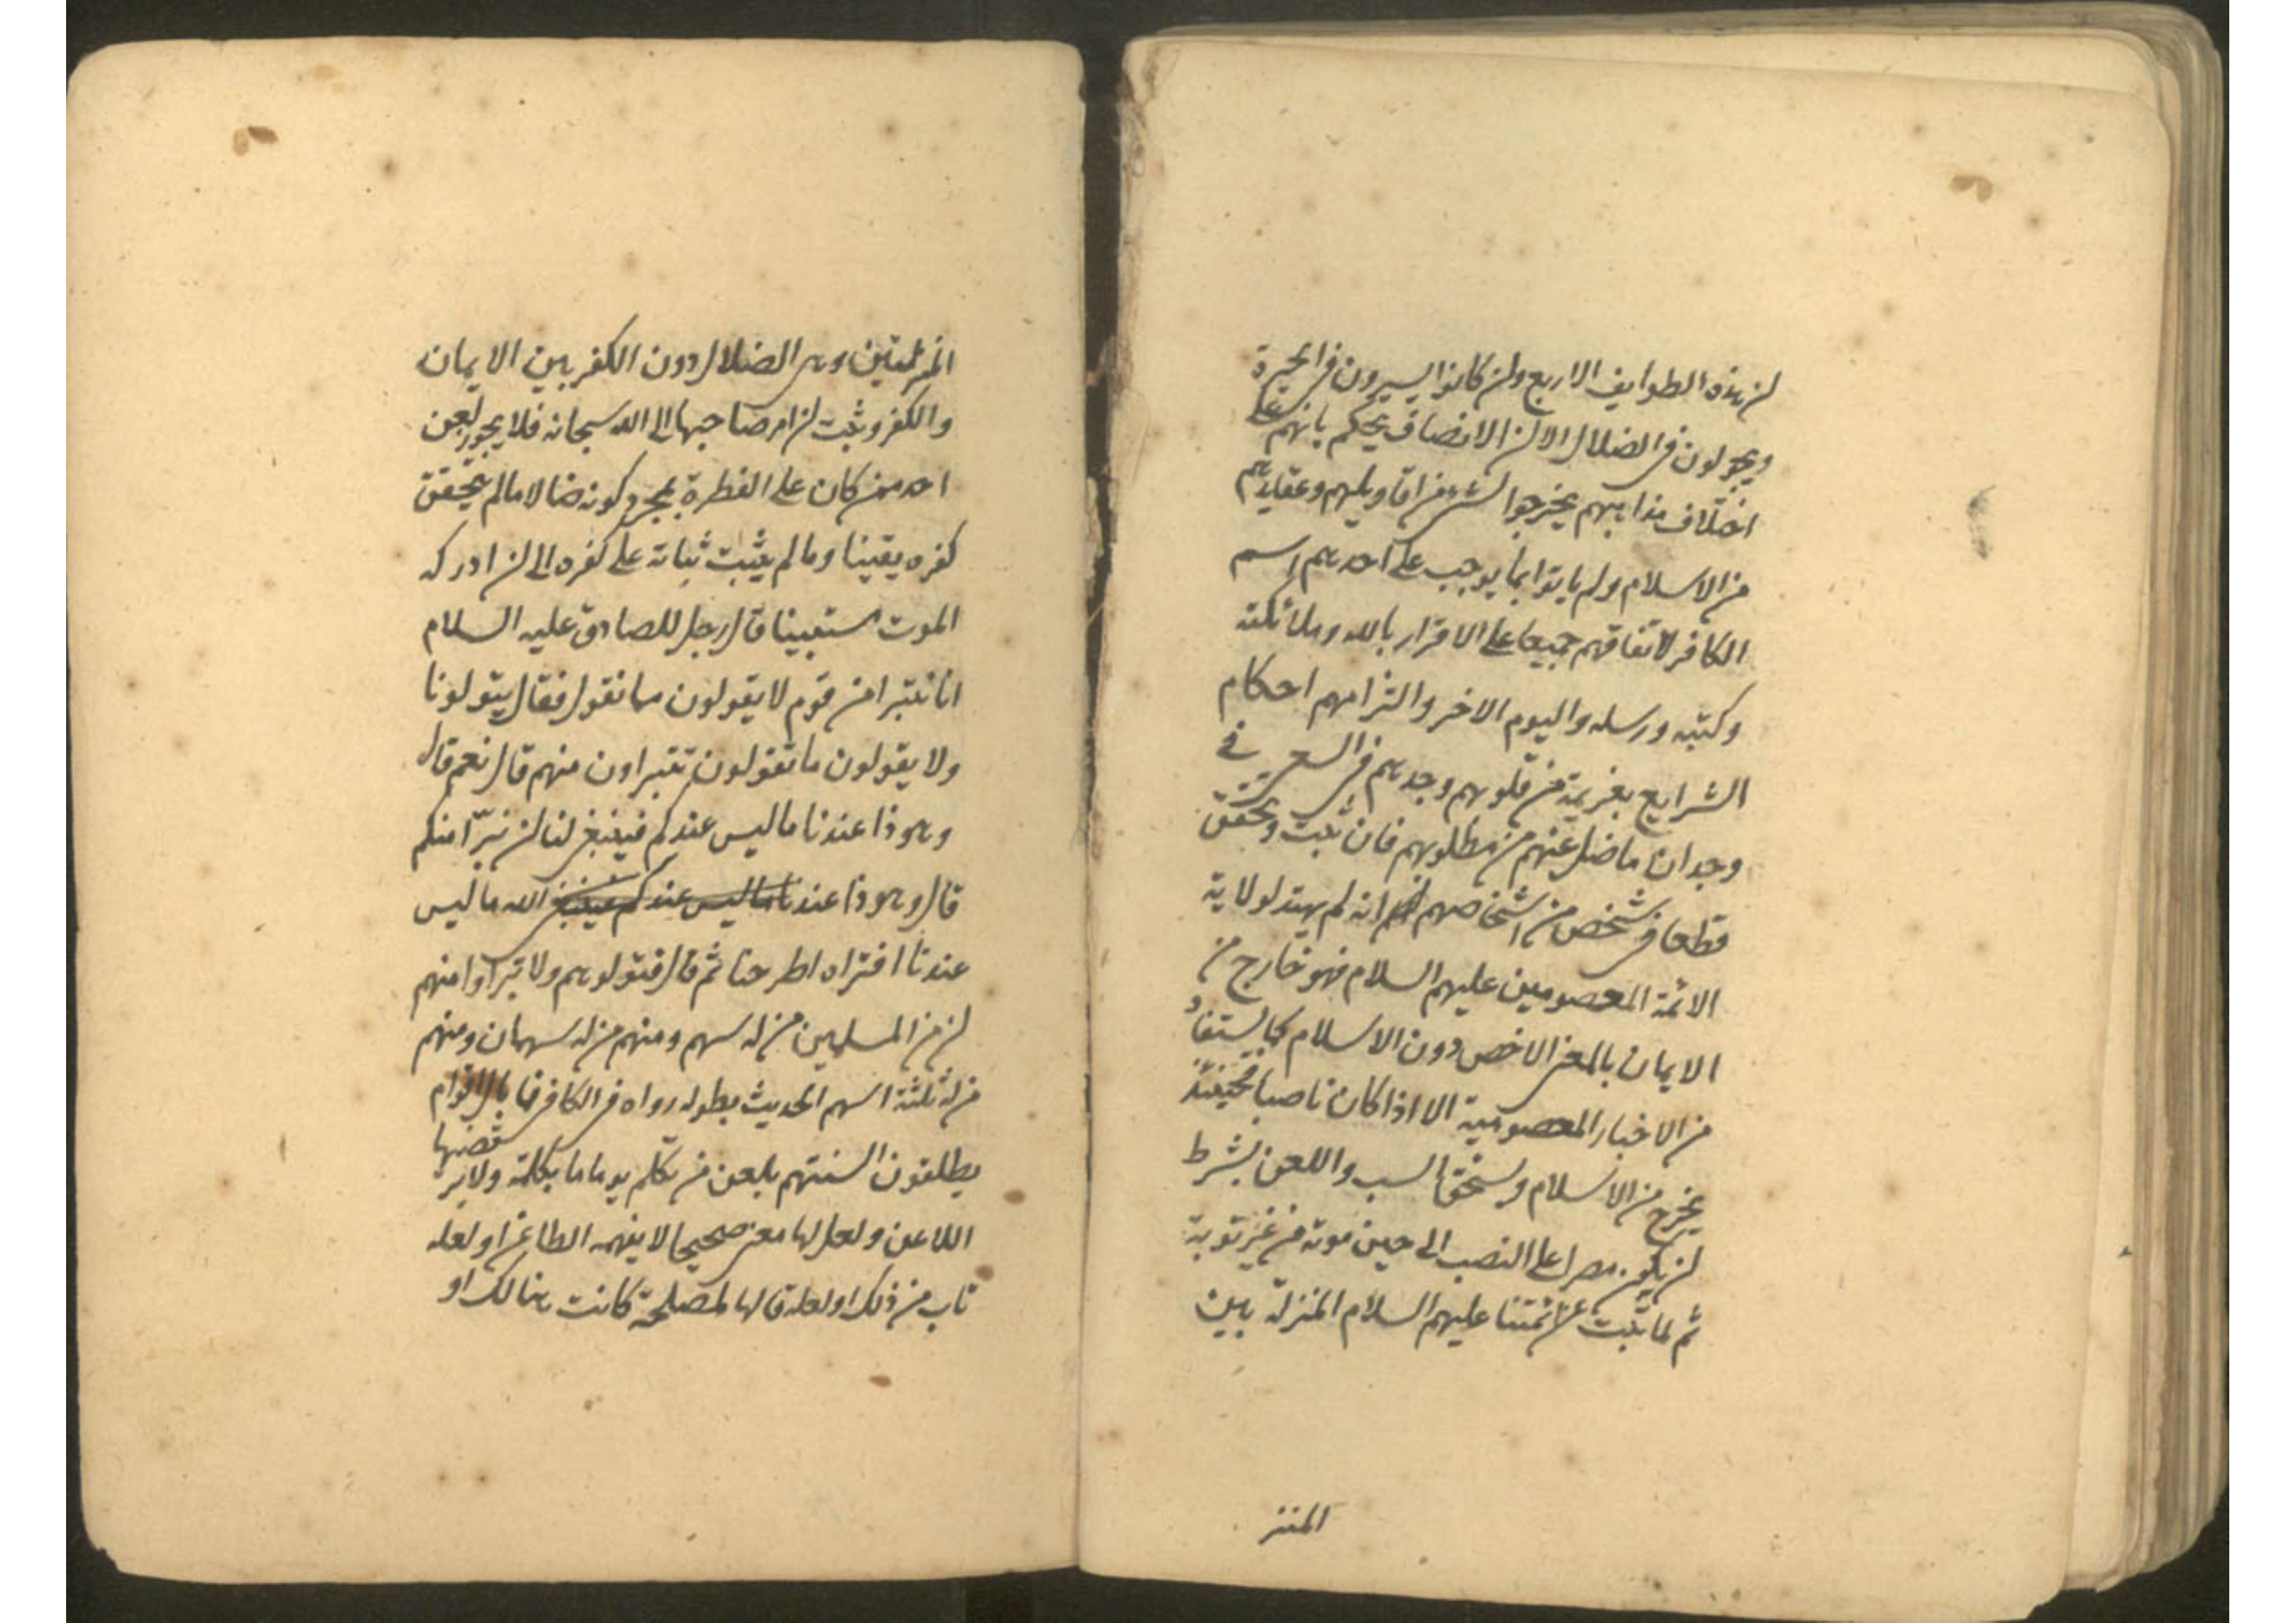 ان هذه الطوايف الاربع وان كانوا يسيرون في الحيرة
ويجولون في الضلال الا ان الانصاف يحكم بانهم على
اختلاف مذاهبهم يخرجوا بشئ من اقاويلهم وعقايدهم
من الاسلام ولم ياتوا بما يوجب على احدهم اسم
الكافر لاتفاقهم جميعا على الاقرار بالله وملائكته
وكتبه ورسله واليوم الاخر والتزامهم احكام
الشرايع بغريمة من قلوبهم وجدهم في السعي في
وجدان ما ضل عنهم من مطلوبهم فان ثبت وتحقق
قطعا في شخص من اشخاصهم انه لم يهتد لولاية
الائمة المعصومين عليهم السلام فهو خارج من
الايمان بالمعنى الاخص دون الاسلام كما يستفاد
من الاخبار المعصومية الا اذا كان ناصبا فحينئذ
يخرج من الاسلام ويستحق السب واللعن بشرط
ان يكون مصرا على النصب الى حين موته من غير توبة
ثم لما ثبت عن ائمتنا عليهم السلام المنزلة بين
المنز
المنزلتين وهي الضلال دون الكفر بين الايمان
والكفر وثبت ان امر صاحبها الى الله سبحانه فلا يجوز لعن
احد ممن كان على الفطرة بمجرد كونه ضالا ما لم يتحقق
كفره يقينا وما لم يثبت ثباته على كفره الى ان ادركه
الموت مستبينا قال رجل للصادق عليه السلام
انا نتبرا من قوم لا يقولون ما نقول فقال يتولونا
ولا يقولون ما تقولون تتبراون منهم قال نعم قال
وهوذا عندنا ما ليس عندكم فينبغي لنا ان نتبرّا منكم
قال وهوذا عندنا ما ليس عندكم فينبغي الله ما ليس
عندنا افتراه اطرحنا ثم قال فتولوهم ولا تبراوا منهم
ان من المسلمين من له سهم ومنهم من له سهمان ومنهم
من له ثلثة اسهم الحديث بطوله رواه في الكافي فما بال اقوام
يطلقون السنتهم بلعن من تكلم يوما ما بكلمة ولا يرتضيها
اللاعن ولعل لها معنى صحيحا لا يفهمه الطاعن او لعله
تاب من ذلك او لعله قالها لمصلحة كانت هنالك او